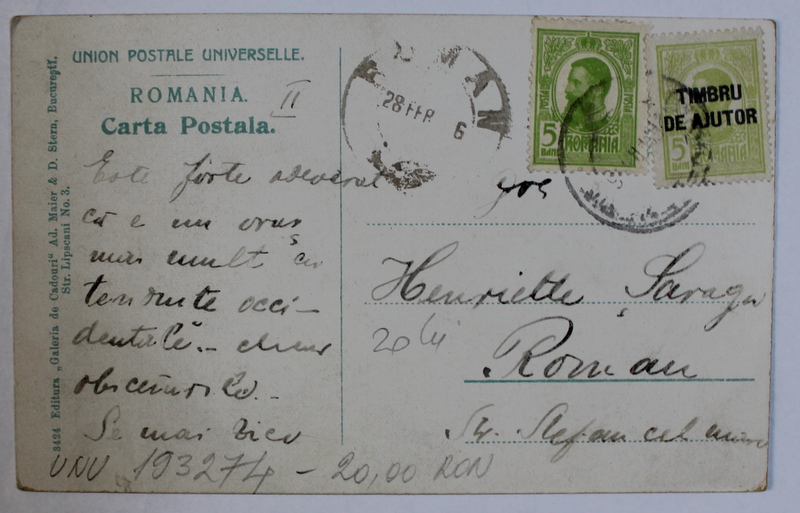 UNION POSTALE UNIVERSELLE.
ROMANIA. II
Carta Postala.
ROMAN
28 FEB 6
5 BANI
POSTA
ROMANIA
TIMBRU
DE AJUTOR
5
ROMANIA
Este forte adevarat
că e un oraș
mai mult cu
tendințe occi-
dentale. -
Se mai zice
Henriette Șaraga
20 lei
Roman
Str. Stefan cel mare
UNV 193274 - 20,00 RON
3424 Editura „Galeria de Cadouri" Ad. Maier & D. Stern, Bucureşti.
Str. Lipscani No. 3.